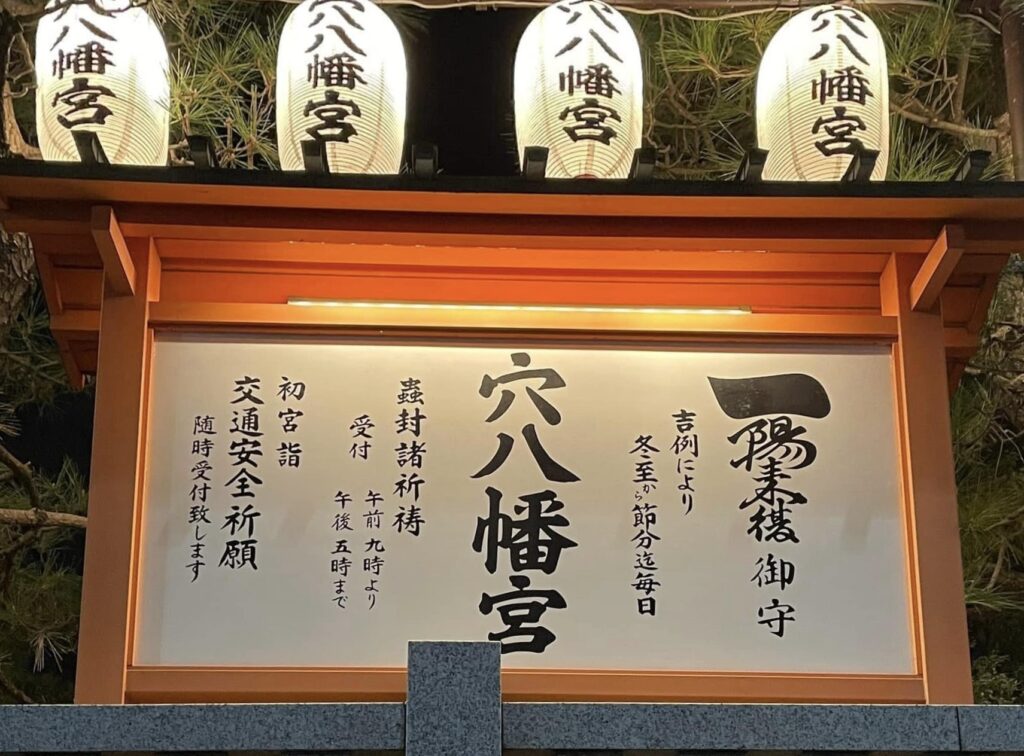 穴八幡宮
穴八幡宮
穴八幡宮
穴八幡宮
一陽来復御守
吉例により
冬至から節分迄毎日
穴八幡宮
蟲封諸祈祷
受付
午前九時より
午後五時まで
初宮詣
交通安全祈願
随時受付致します